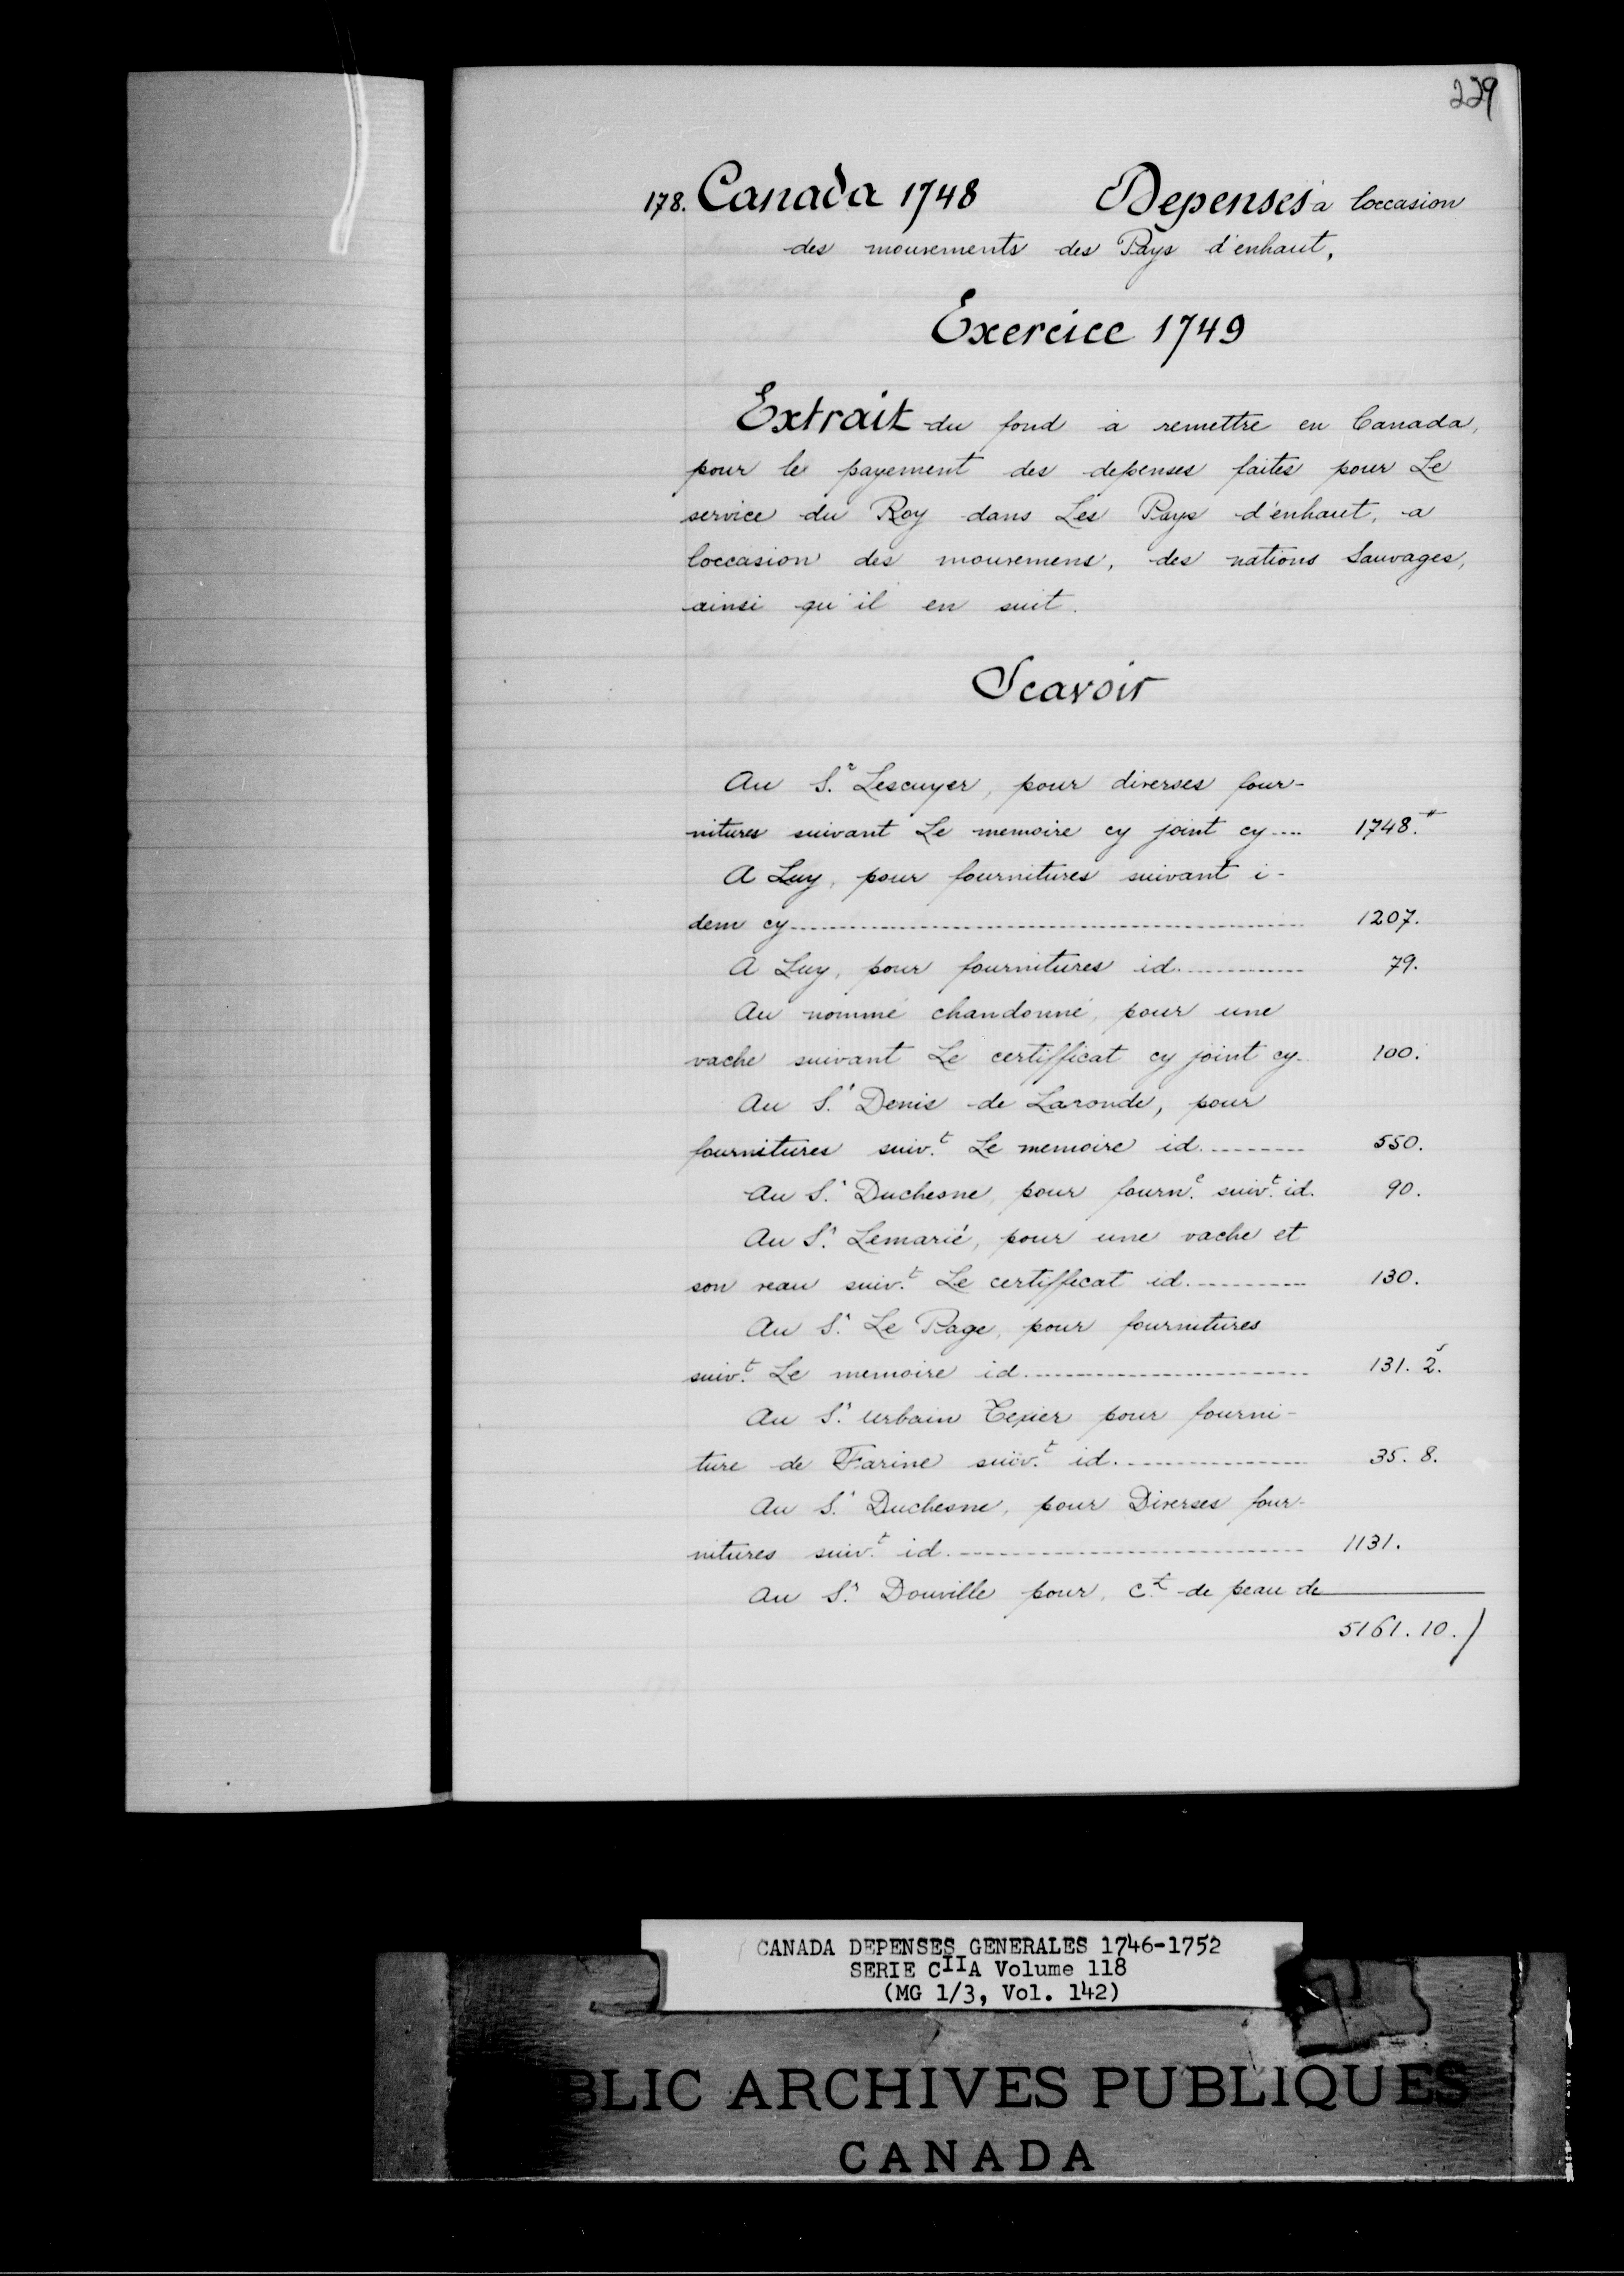 229
178. Canada 1748 Depenses a loccasion
des mouvements des Pays d'enhaut,
Exercice 1749
Extrait du fond a remettre en Canada,
pour le payement des depenses faites pour Le
service du Roy dans Les Pays d'enhaut, a
loccasion des mouvemens, des nations Sauvages,
ainsi qu'il en suit.
Scavoir
Au S.r Lescuyer, pour diverses four-
nitures suivant Le memoire cy joint cy.... 1748.#
A Luy, pour fournitures suivant i-
dem cy........ 1207.
A Luy, pour fournitures id........ 79.
Au nommé chandonné, pour une
vache suivant Le certifficat cy joint cy.. 100.
Au S.r Denis de Laronde, pour
fournitures suiv.t Le memoire id........ 550.
Au S.r Duchesne, pour fourn.e suiv.t id. 90.
Au S.r Lemarié, pour une vache et
son veau suiv.t Le certifficat id........ 130.
Au S.r Le Page, pour fournitures
suiv.t Le memoire id........ 131. 2.s
Au S.r urbain Texier pour fourni-
ture de Farine suiv.t id........ 35. 8.
Au S.r Duchesne, pour Diverses four-
nitures suiv.t id........ 1131.
Au S.r Douville pour, c.t de peau de
5161. 10./
CANADA DEPENSES GENERALES 1746-1752
SERIE CIIA Volume 118
(MG 1/3, Vol. 142)
BLIC ARCHIVES PUBLIQUES
CANADA